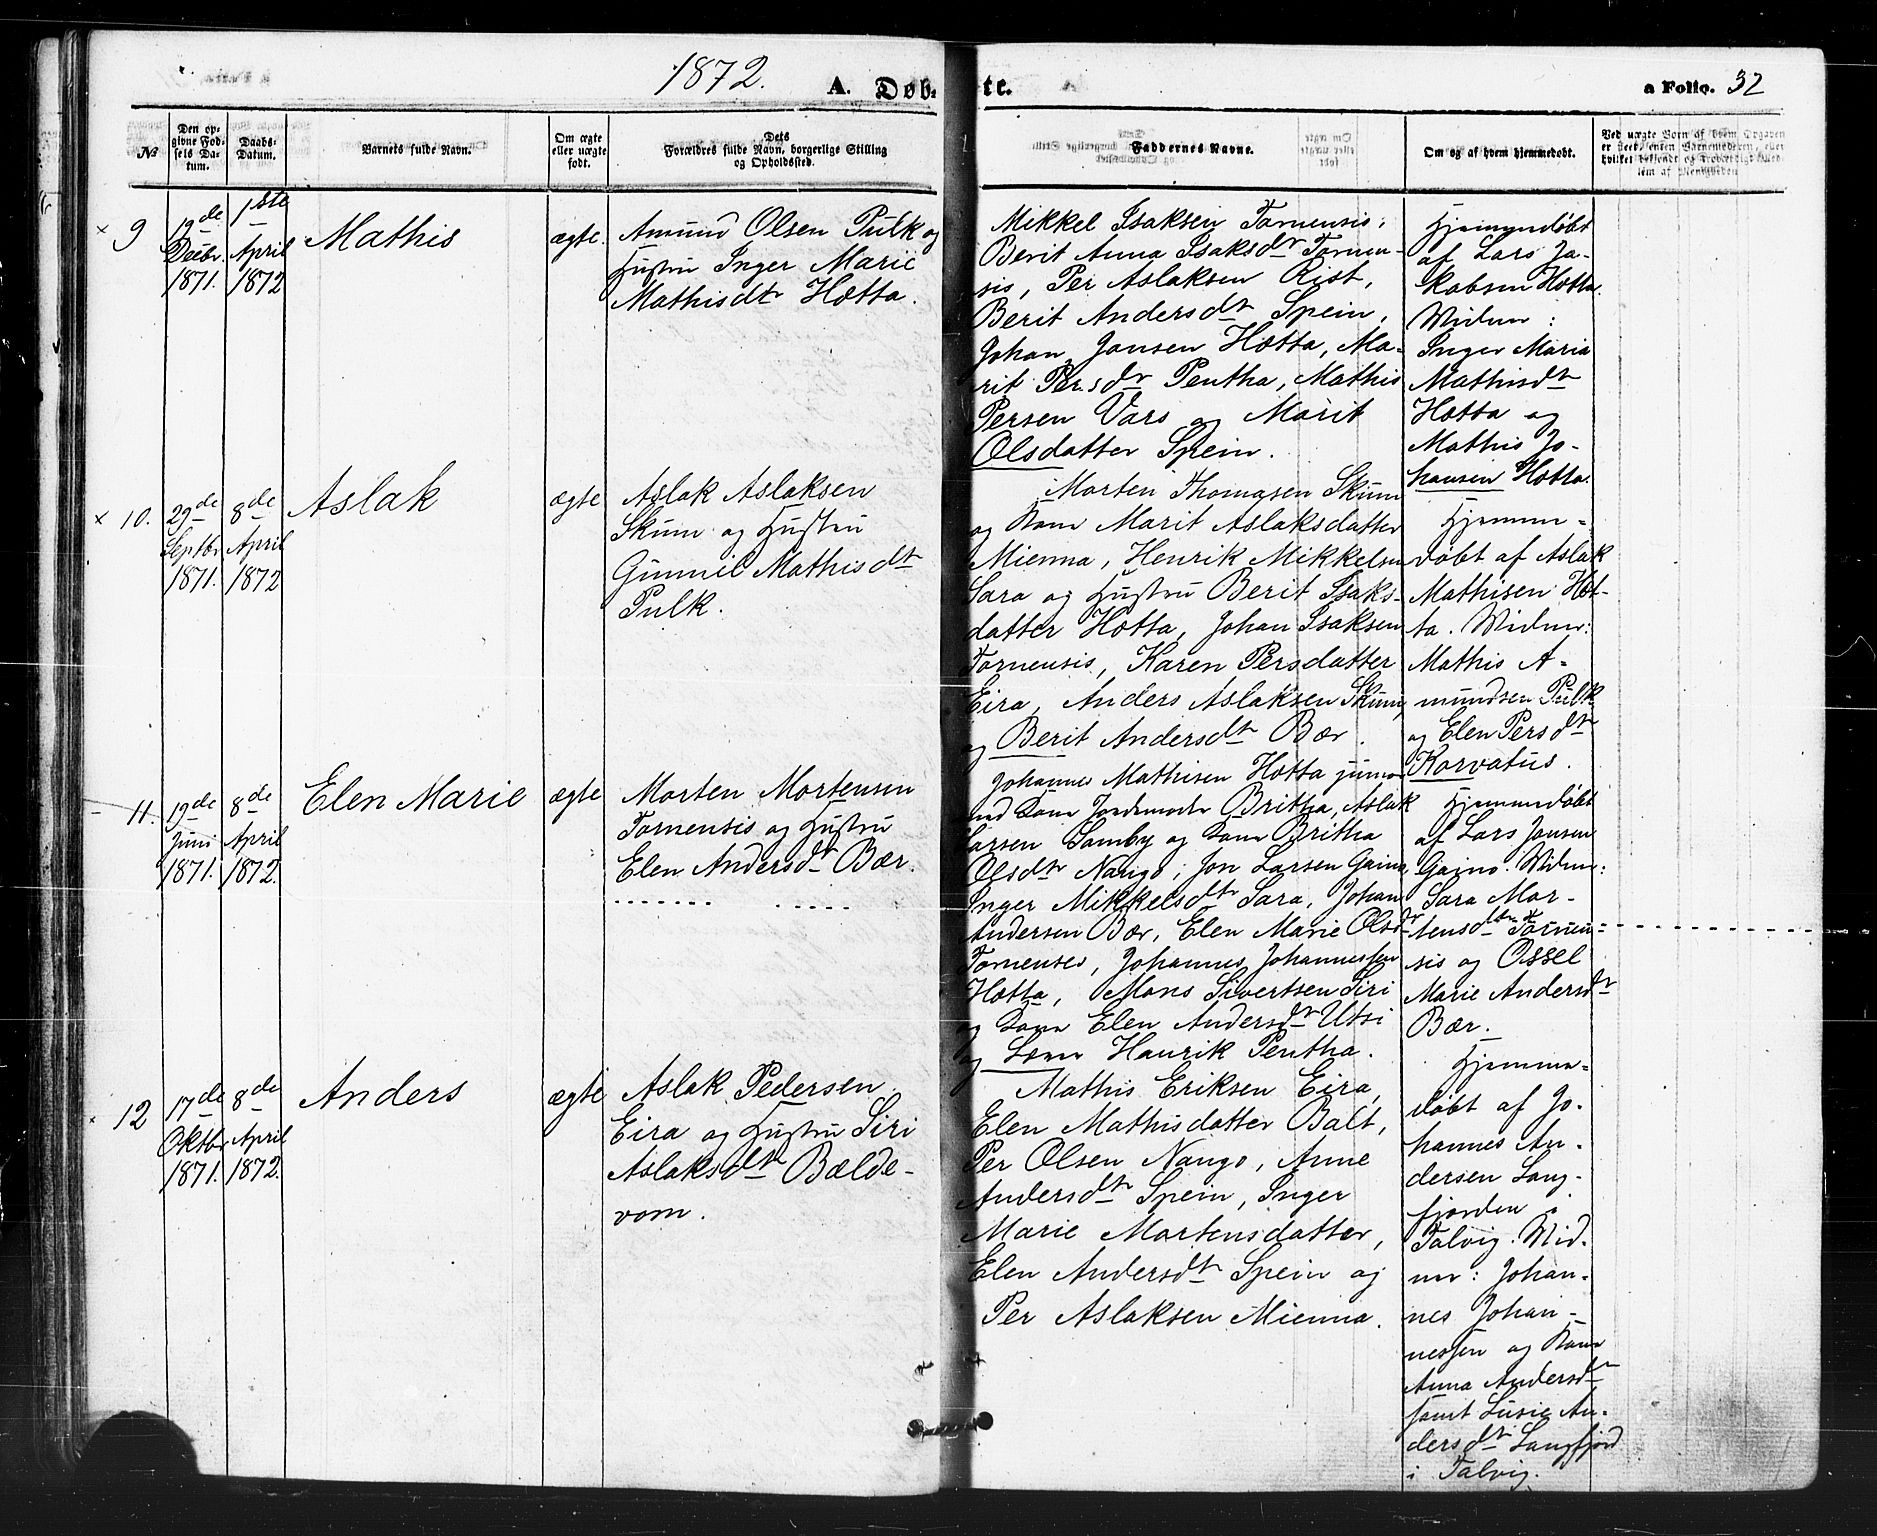 1872.
A. Døb- te.
a Folio. 32
№
Den op-
givne Fød-
sels Da-
tum.
Daabs-
Datum.
Barnets fulde Navn.
Om ægte
eller uægte
født.
Dets
Forældres fulde Navn, borgerlige Stilling
og Opholdssted.
Faddernes Navne.
Om og af hvem hjemmedøbt.
× 9
19de
Decbr.
1871.
1ste
April
1872
Mathis
ægte.
Amund Olsen Pulk og
Hustru Inger Marie
Mathisdtr Hætta.
Mikkel Isaksen Tornensis,
Berit Anna Isaksdtr Tornen-
sis, Per Aslaksen Rist,
Berit Andersdtr Spein,
Johan Jansen Hætta, Ma-
rit Persdtr Pentha, Mathis
Persen Vars og Marit
Olsdatter Spein.
Hjemmedøbt
af Lars Ja-
kobsen Hætta.
Vidner:
Inger Maria
Mathisdtr
Hætta og
Mathis Jo-
hansen Hætta.
× 10.
29de
Septbr
1871.
8de
April
1872
Aslak
ægte
Aslak Aslaksen
Skum og Hustru
Gunnil Mathisdtr
Pulk.
Morten Thomasen Skum
og Kone Marit Aslaksdatter
Mienna, Henrik Mikkelsen
Sara og Hustru Berit Isaks-
datter Hætta, Johan Isaksen
Tornensis, Karen Persdatter
Eira, Anders Aslaksen Skum,
og Berit Andersdtr Bær.
Hjemme-
døbt af Aslak
Mathisen Hæt-
ta. Vidner:
Mathis A-
mundsen Pulk
og Elen Persdtr
Korvatus.
11.
19de
Juni
1871.
8de
April
1872.
Elen Marie
ægte
Morten Mortensen
Tornensis og Hustru
Elen Andersdtr Bær.
Johannes Mathisen Hætta junior
med Kone Jordemoder Britha, Aslak
Larsen Somby og Kone Britha
Olsdtr Nango, Jon Larsen Gaino,
Inger Mikkelsdtr Sara, Johan
Andersen Bær, Elen Marie Olsdtr
Tornenses, Johannes Johannessen
Hætta, Mons Sivertsen Siri
og Kone Elen Andersdtr Utsi
og Henrik Pentha.
Hjemmedøbt
af Lars Jansen
Gaino. Vidner:
Sara Mor-
tensdtr Tornen-
sis og Ossel
Marie Andersdtr
Bær.
12
17de
Oktbr
1871.
8de
April
1872.
Anders
ægte
Aslak Pedersen
Eira og Hustru Siri
Aslaksdtr Bælde-
vom.
Mathis Eriksen Eira,
Elen Mathisdatter Balt,
Per Olsen Nango, Anne
Andersdtr Spein, Inger
Marie Mortensdatter,
Elen Andersdtr Spein og
Per Aslaksen Mienna.
Hjemme-
døbt af Jo-
hannes An-
dersen Lang-
fjorden i
Talvig. Vid-
ner: Johan-
nes Johan-
nessen og Kone
Anna Andersdtr
samt Lusie An-
dersdtr Langfjord
i Talvig.